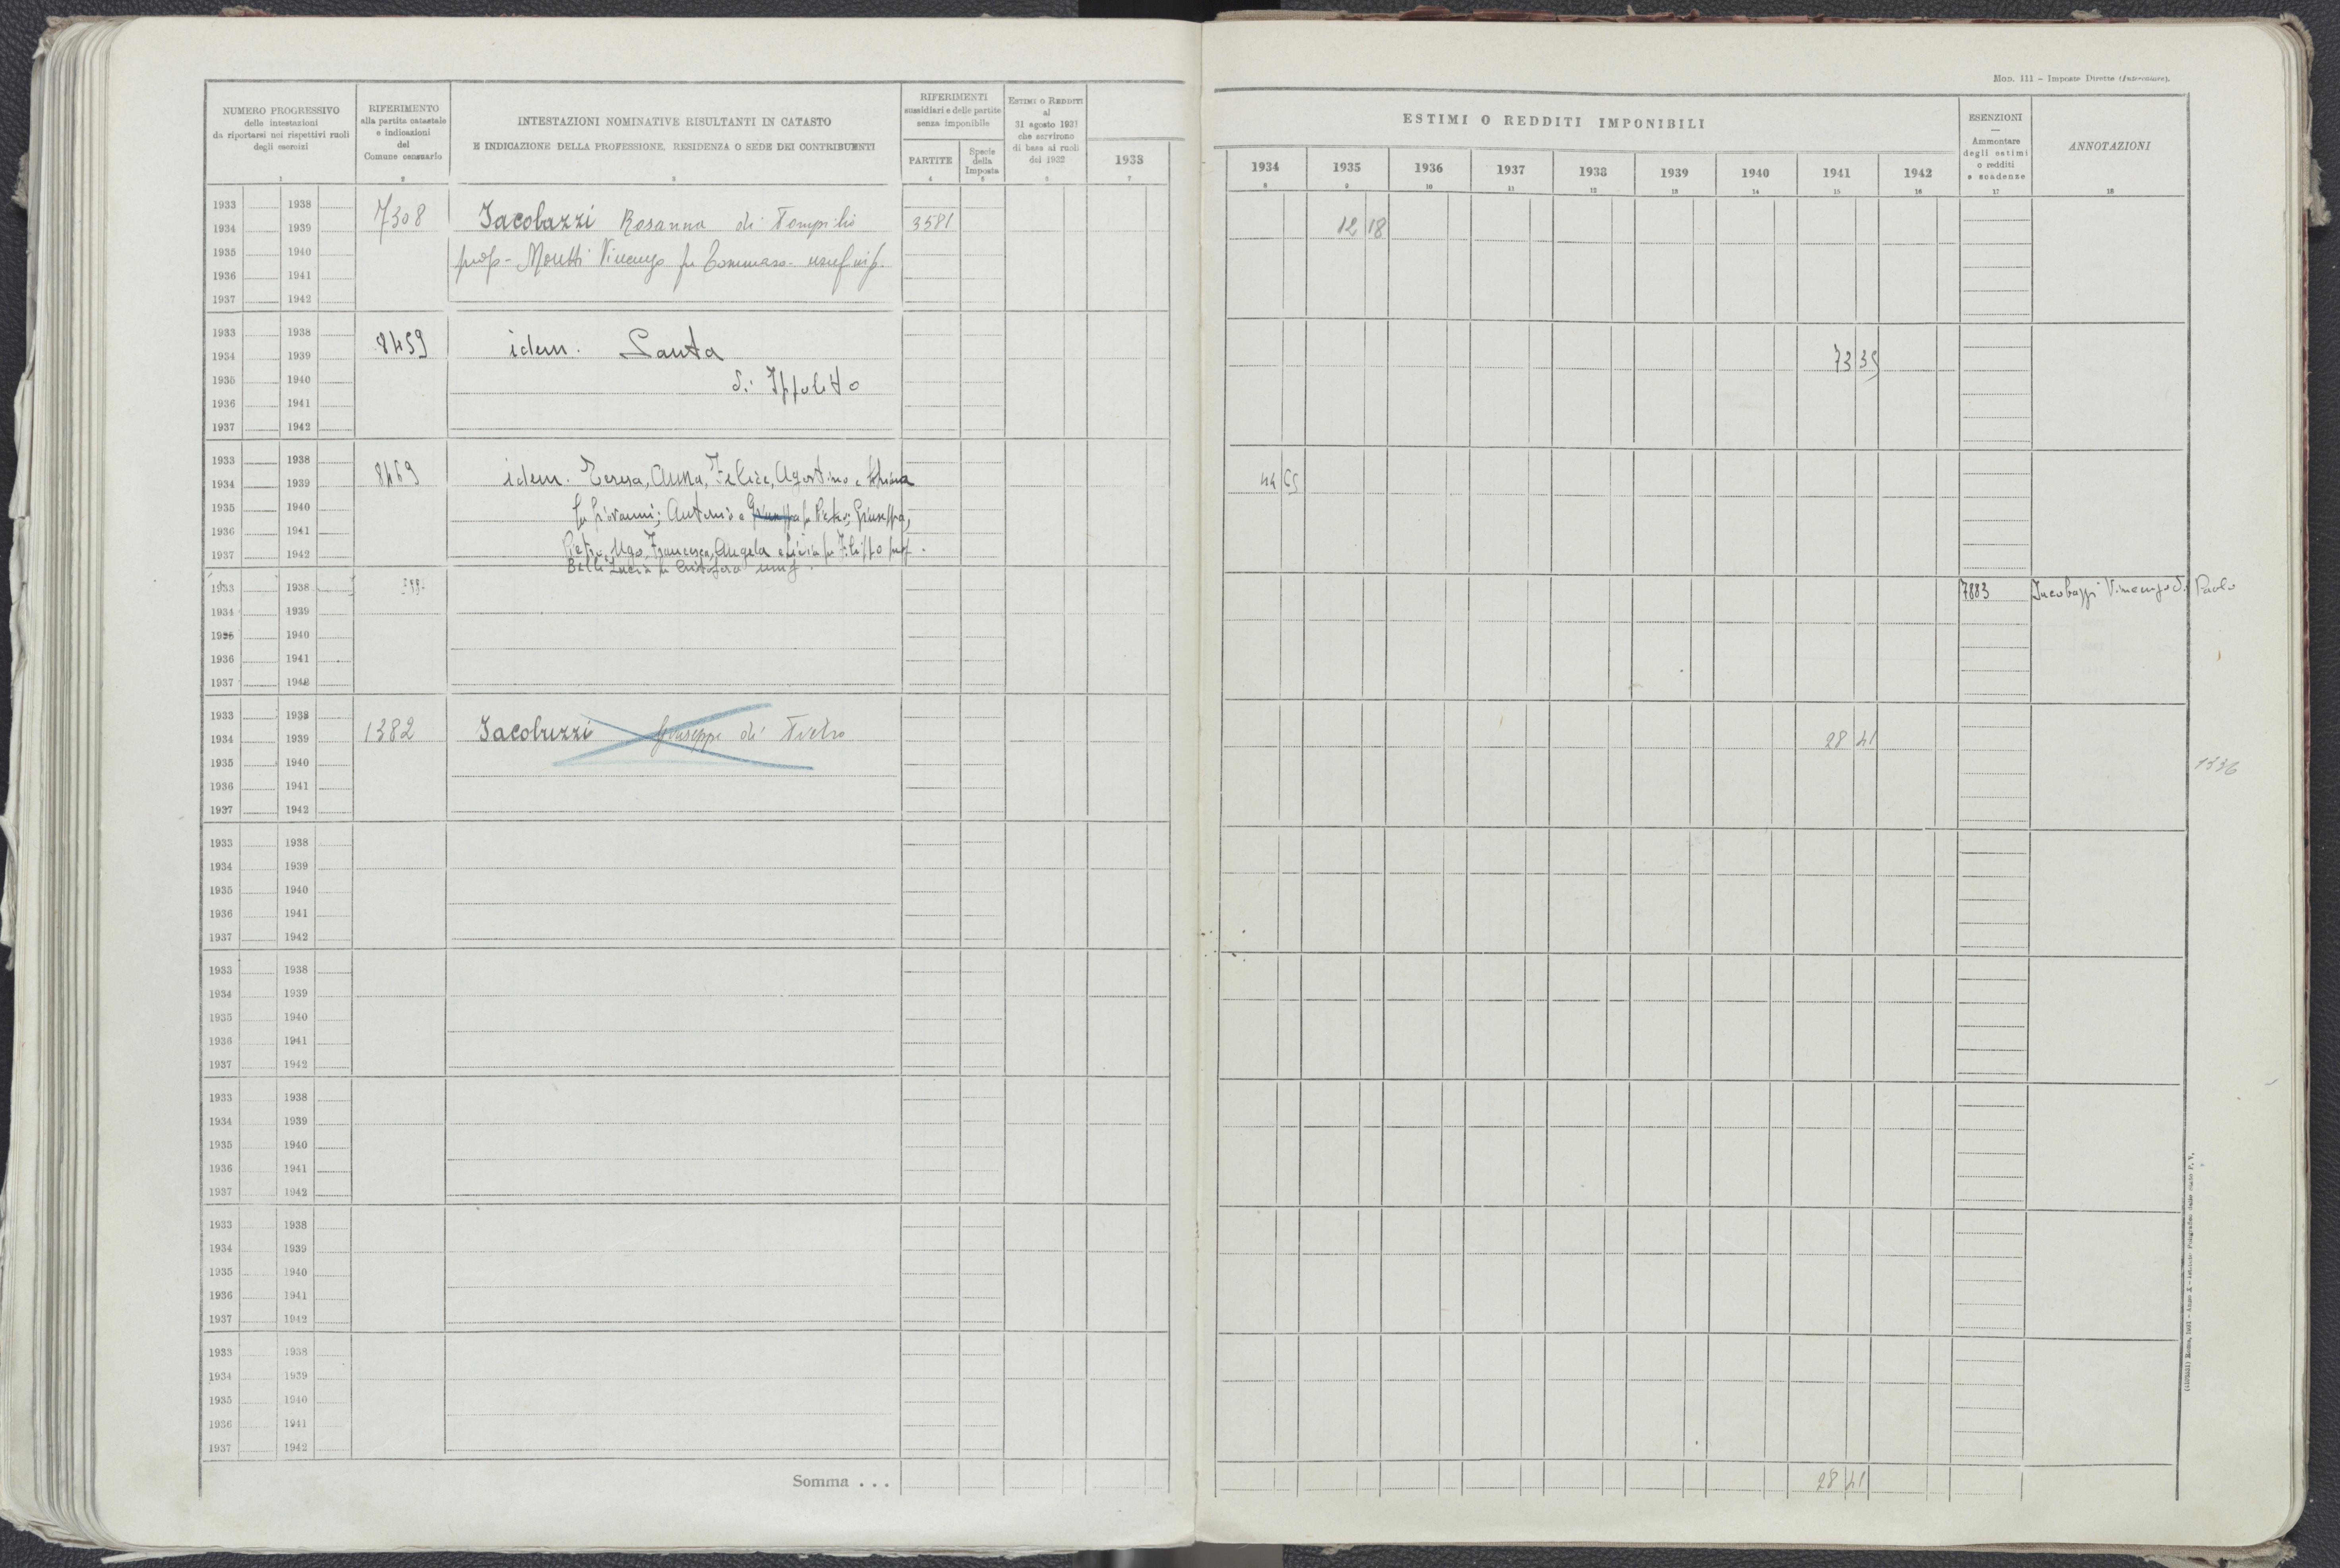 MOD. 111 - Imposte Dirette (Intercalare).
NUMERO PROGRESSIVO
delle intestazioni
da riportarsi nei rispettivi ruoli
degli esercizi
1
RIFERIMENTO
alla partita catastale
e indicazioni
del
Comune censuario
2
INTESTAZIONI NOMINATIVE RISULTANTI IN CATASTO
E INDICAZIONE DELLA PROFESSIONE, RESIDENZA O SEDE DEI CONTRIBUENTI
3
RIFERIMENTI
sussidiari e delle partite
senza imponibile
PARTITE
4
Specie
della
Imposta
5
ESTIMI O REDDITI
al
31 agosto 1931
che servirono
di base ai ruoli
del 1932
6
1933
7
ESTIMI O REDDITI IMPONIBILI
1934 1935 1936 1937 1938 1939 1940 1941 1942
8 9 10 11 12 13 14 15 16
ESENZIONI
Ammontare
degli estimi
o redditi
e scadenze
17
ANNOTAZIONI
18
1933 1938
1934 1939 7308 Iacobazzi Rosanna di Pompilio 3581 12 18
1935 1940 prop - Moretti Vincenzo fu Tommaso - usuf
1936 1941
1937 1942
1933 1938
1934 1939 8459 idem. Santa 73 35
1935 1940 di Ippolito
1936 1941
1937 1942
1933 1938
1934 1939 8469 idem. Teresa, Anna, Felice, Agostino e
1935 1940 fu Giovanni; Antonio e Giuseppa fu Pietro; Giuseppa,
1936 1941
1937 1942 Pietro, Ugo, Francesca, Angela e Livia fu Filippo prop.
Belli Lucia fu Cristofaro usuf.
44 65
1933 1938 7883 Iacobazzi Vincenzo di Paolo
1934 1939
1935 1940
1936 1941
1937 1942
1933 1938
1934 1939 1382 Iacobuzzi Giuseppe di Pietro 28 41
1935 1940 1336
1936 1941
1937 1942
1933 1938
1934 1939
1935 1940
1936 1941
1937 1942
1933 1938
1934 1939
1935 1940
1936 1941
1937 1942
1933 1938
1934 1939
1935 1940
1936 1941
1937 1942
1933 1938
1934 1939
1935 1940
1936 1941
1937 1942
1933 1938
1934 1939
1935 1940
1936 1941
1937 1942
Somma . . . 28 41